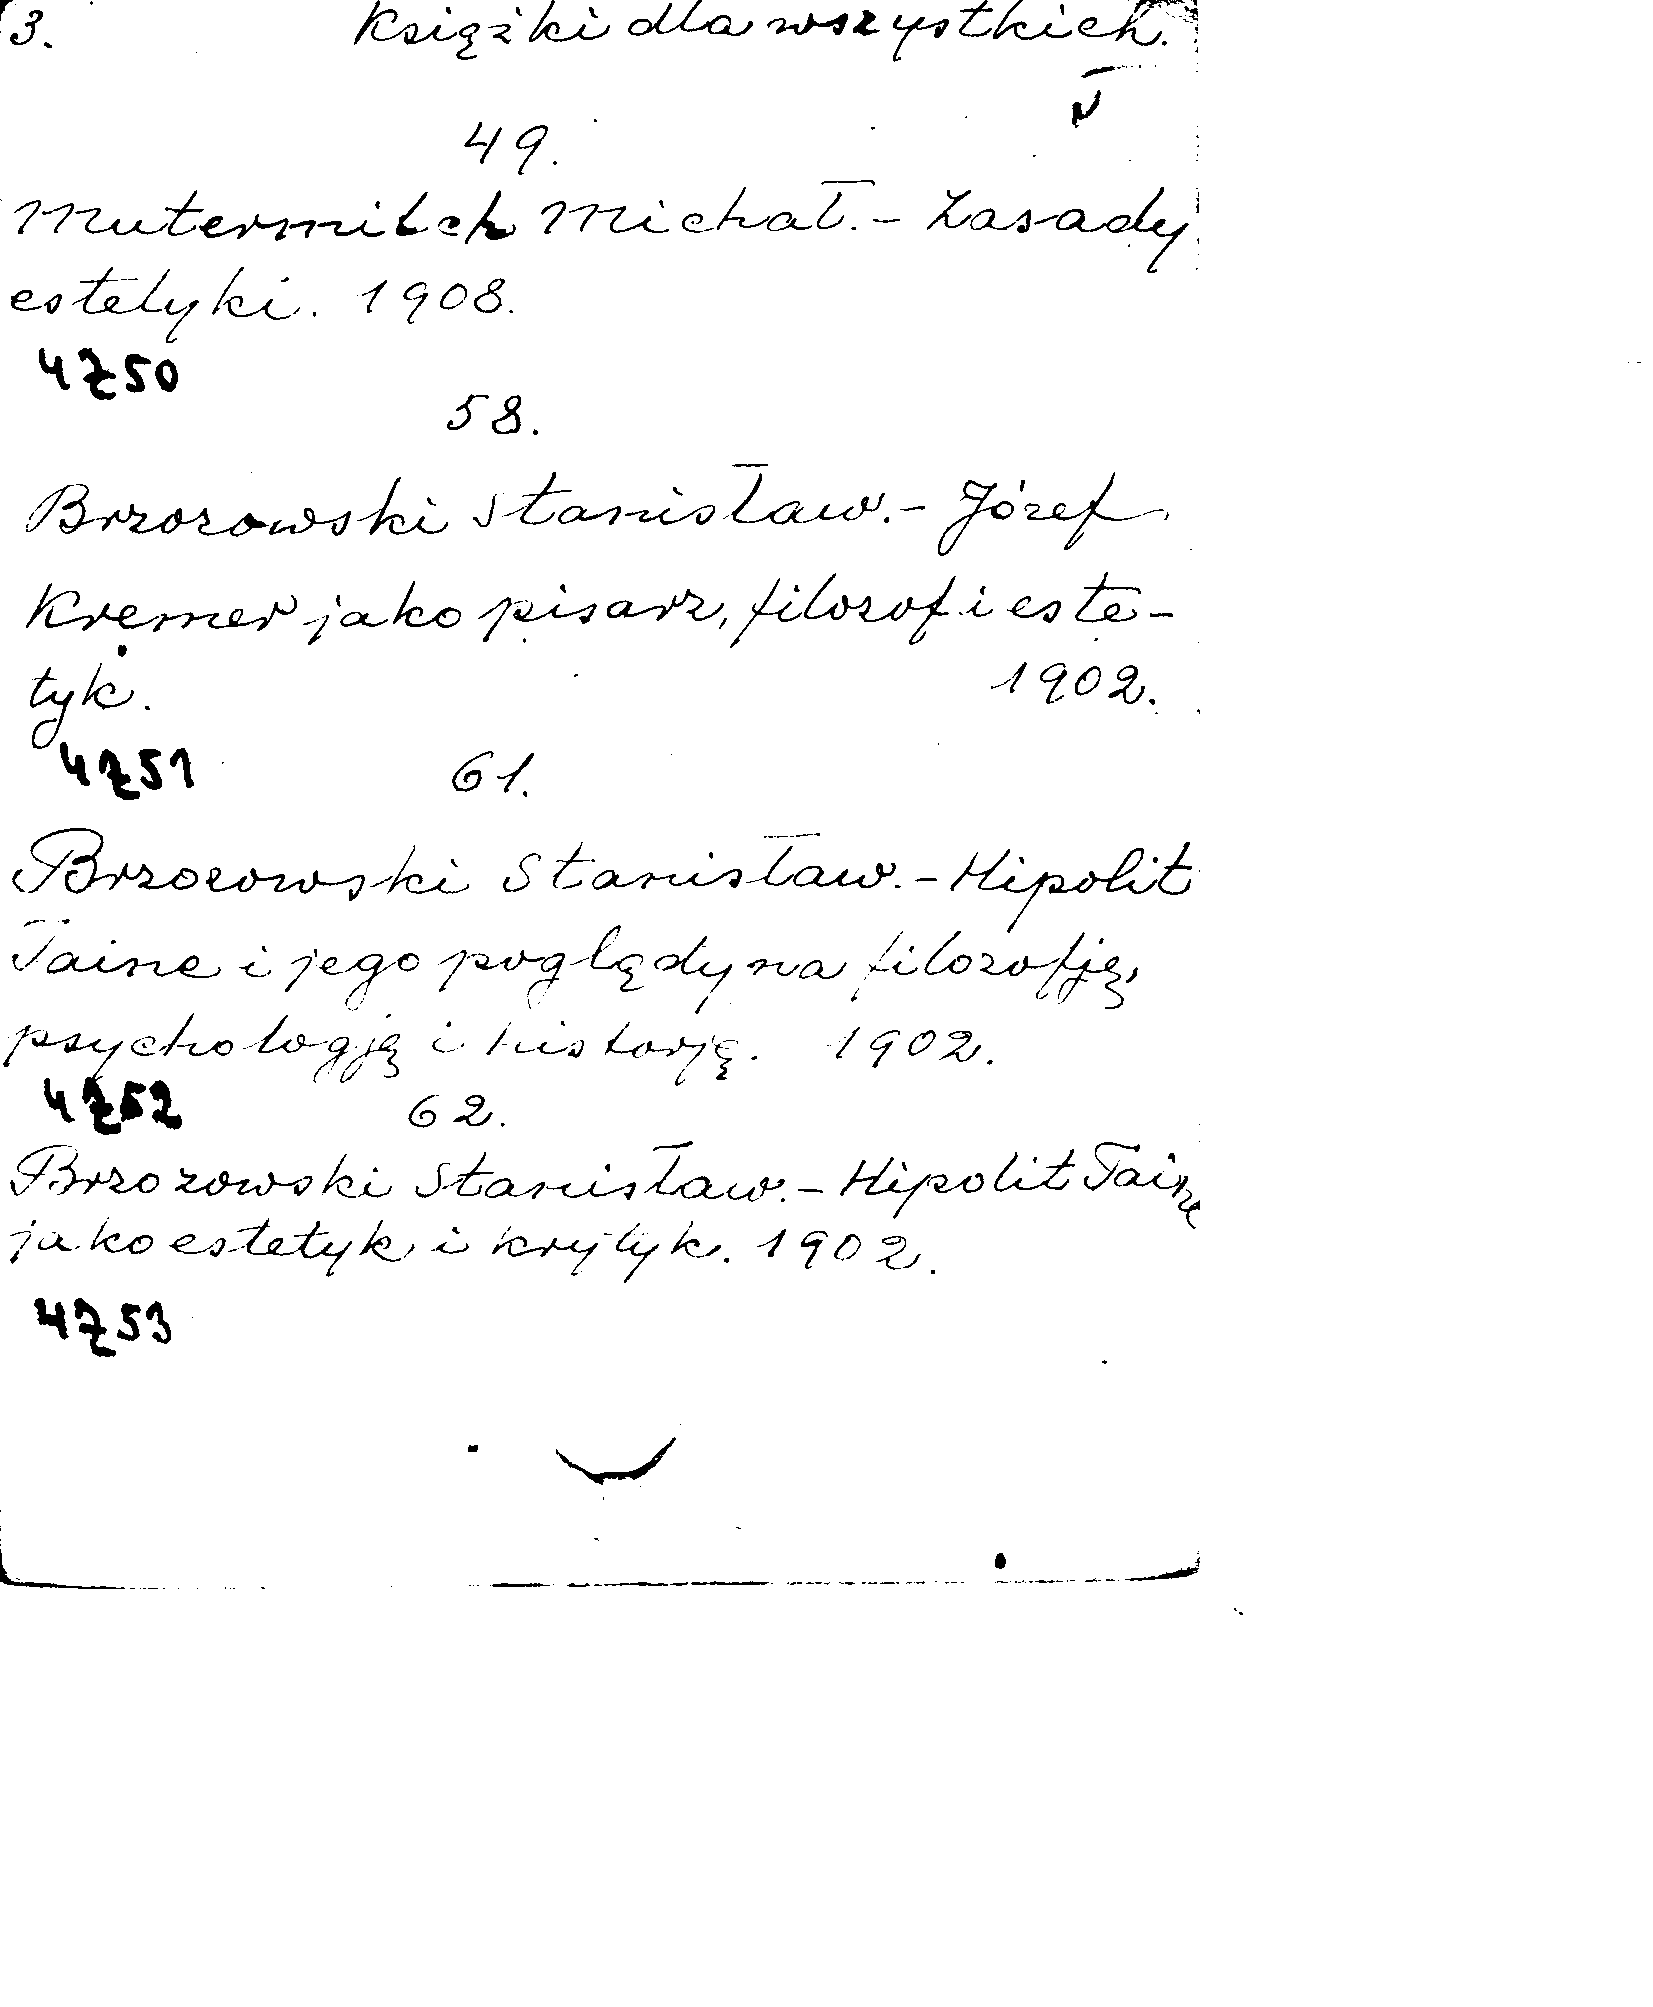 3. Książki dla wszystkich.
49.
Mutermilch Michał. - Zasady
estetyki. 1908.
4750
58.
Brzozowski Stanisław. - Józef
Kremer jako pisarz, filozof i este-
tyk. 1902.
4751
61.
Brzozowski Stanisław. - Hipolit
Taine i jego poglądy na filozofję,
psychologję i historję. 1902.
4752
62.
Brzozowski Stanisław. - Hipolit Taine
jako estetyk i krytyk. 1902.
4753